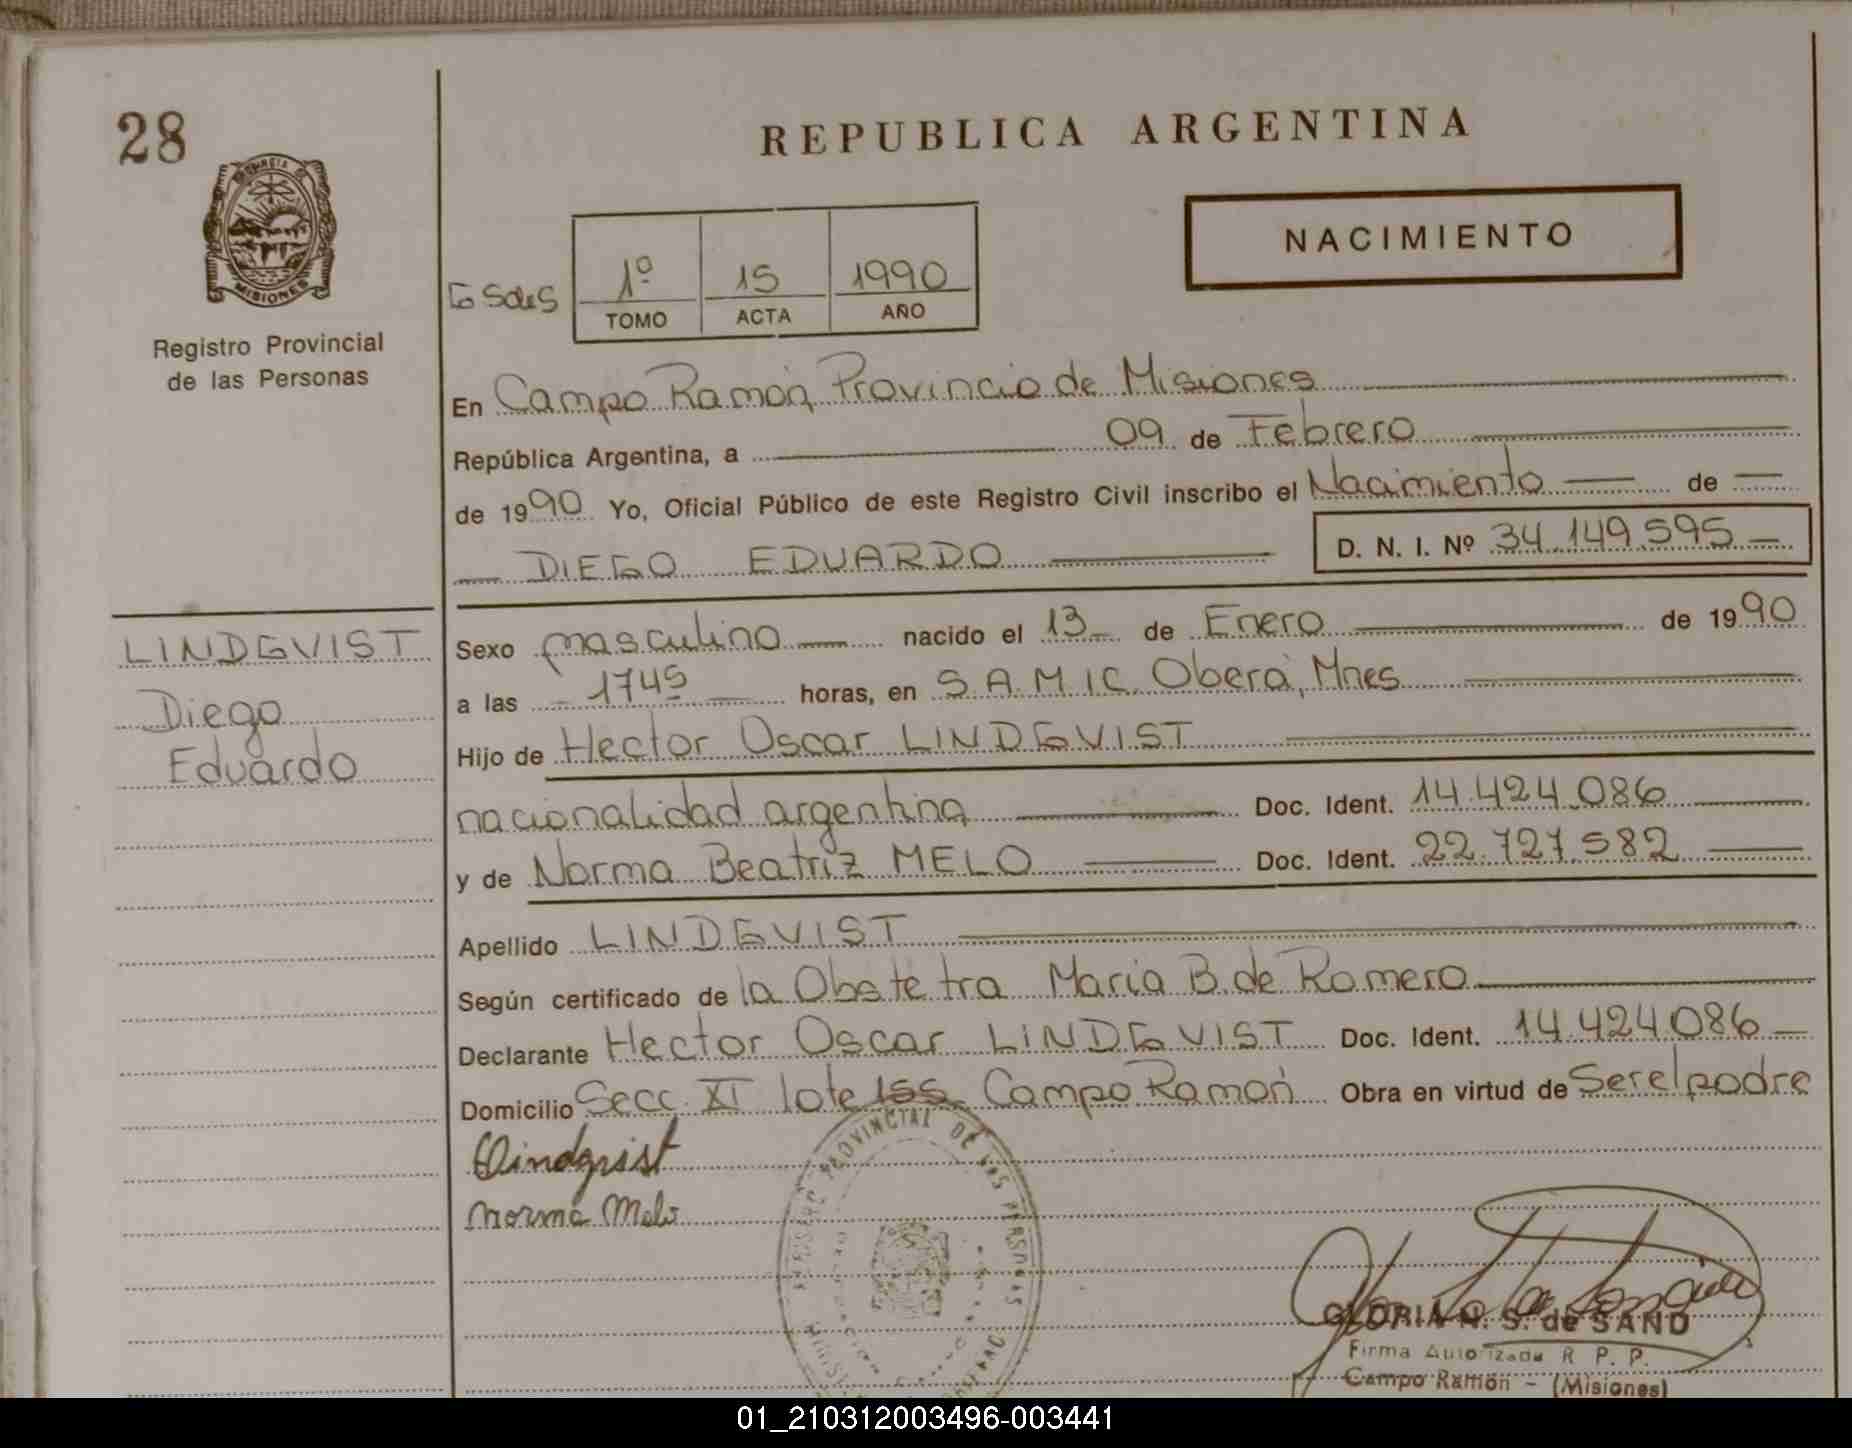 28
REPUBLICA ARGENTINA
NACIMIENTO
PROVINCIA DE
MISIONES
Registro Provincial
de las Personas
1º 15 1990
TOMO ACTA AÑO
En Campo Ramón, Provincia de Misiones
República Argentina, a 09 de Febrero
de 1990 Yo, Oficial Público de este Registro Civil inscribo el Nacimiento — de —
DIEGO EDUARDO D. N. I. Nº 34.149.595 —
LINDGVIST
Diego
Eduardo
Sexo masculino — nacido el 13 de Enero de 1990
a las 1745 horas, en S.A.M.I.C. Oberá, Mnes
Hijo de Hector Oscar LINDGVIST
nacionalidad argentina Doc. Ident. 14.424.086
y de Norma Beatriz MELO Doc. Ident. 22.727.582
Apellido LINDGVIST
Según certificado de la Obstetra Maria B. de Romero
Declarante Hector Oscar LINDGVIST Doc. Ident. 14.424.086 —
Domicilio Secc. XI lote 155 Campo Ramón Obra en virtud de Ser el padre
Lindqvist
Norma Melo
PROVINCIAL DE LAS PERSONAS
GLORIA N. S. de SAND
Firma Autorizada R. P. P.
Campo Ramón - (Misiones)
01_210312003496-003441